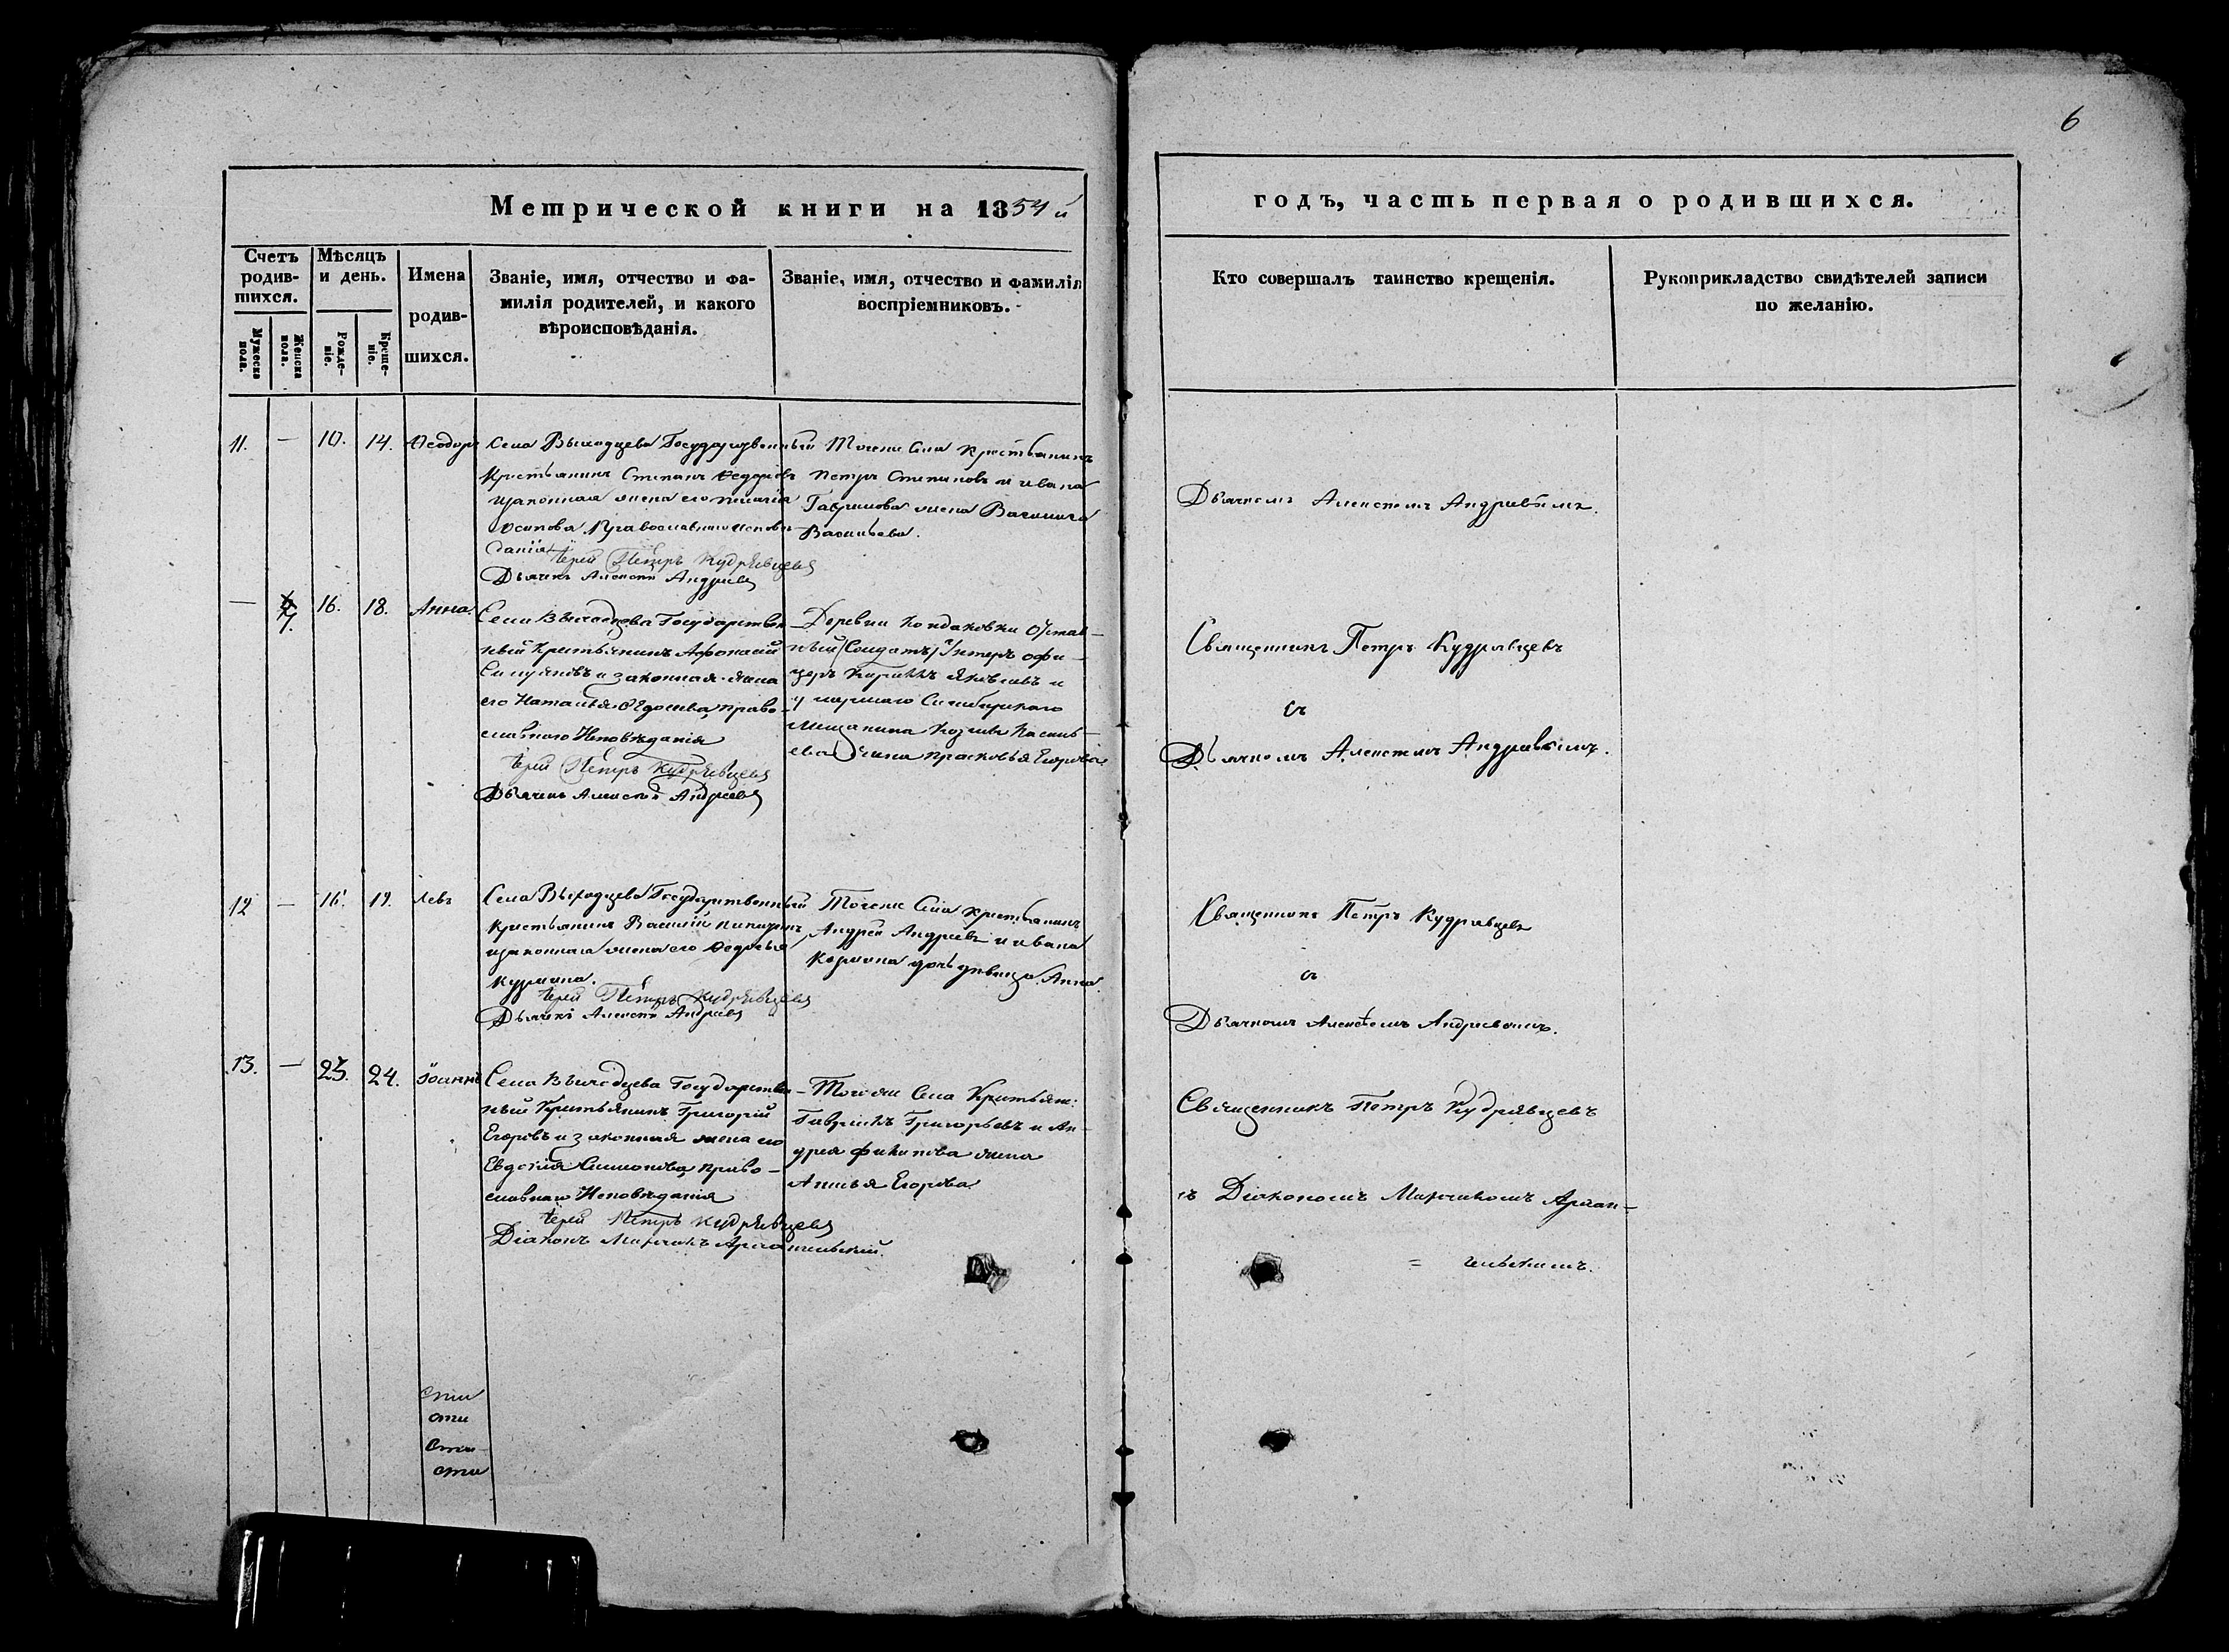 6
Метрической книги на 1854 й
годъ, часть первая о родившихся.
Счетъ родив-шихся.
Мѣсяцъ и день.
Имена родив-шихся.
Званіе, имя, отчество и фа-
милія родителей, и какого
вѣроисповѣданія.
Званіе, имя, отчество и фамилія
воспріемниковъ.
Кто совершалъ таинство крещенія.
Рукоприкладство свидѣтелей записи
по желанію.
Мужеска пола.
Женска пола.
Рожде-ніе.
Креще-ніе.
11. — 10. 14. Ѳеодоръ
Села Выходцева Государственный
Крестьянинъ Степанъ Ѳедоровъ
изаконная жена его
Осипова Православнаго исповѣ-
данія
Іерей Петръ Кудрявцевъ
Дьячекъ Алексѣй Андреевъ
Тогоже Села Крестьянинъ
Петръ Степановъ и ивана
Гаврилова жена Василиса
Васильева.
Дьячкомъ Алексѣемъ Андреевымъ.
— 7. 16. 18. Анна.
Села Выходцева Государствен-
ный Крестьянинъ Афонасій
и законная жена
его Наталья Ѳедосеева, право-
славнаго Исповѣданія
Іерей Петръ Кудрявцевъ
Дьячекъ Алексѣй Андреевъ
Деревни Кондаковки Отстав-
ный (Солдатъ) Унтеръ офи-
церъ Кирилъ Яковлевъ и
Симбирскаго
Мещанина Козмы Василь-
ева жена Прасковья Егорова
Священникъ Петръ Кудрявцевъ
съ
Дьячкомъ Алексѣемъ Андреевымъ.
12 — 16. 19. Левъ
Села Выходцева Государственный
Крестьянинъ Василій
изаконная жена его Ѳедосья
Кузмина.
Іерей Петръ Кудрявцевъ
Дьячекъ Алексѣй Андреевъ
Тогоже Села Крестьянинъ
Андрей Андреевъ и ивана
Карпова дочь девица Анна.
Священникъ Петръ Кудрявцевъ
съ
Дьячкомъ Алексѣемъ Андреевымъ.
13. — 23. 24. Іоаннъ
Села Выходцева Государствен-
ный Крестьянинъ Григорій
Егоровъ и законная жена его
Евдокія Симонова, право-
славнаго Исповѣданія
Іерей Петръ Кудрявцевъ
Діаконъ Архангельскій.
Тогоже Села Крестьян:
Гаврилъ Григорьевъ и Ан-
дрея Филипова жена
Анисья Егорова
Священникъ Петръ Кудрявцевъ
съ Діакономъ Архан-
= гельскимъ.